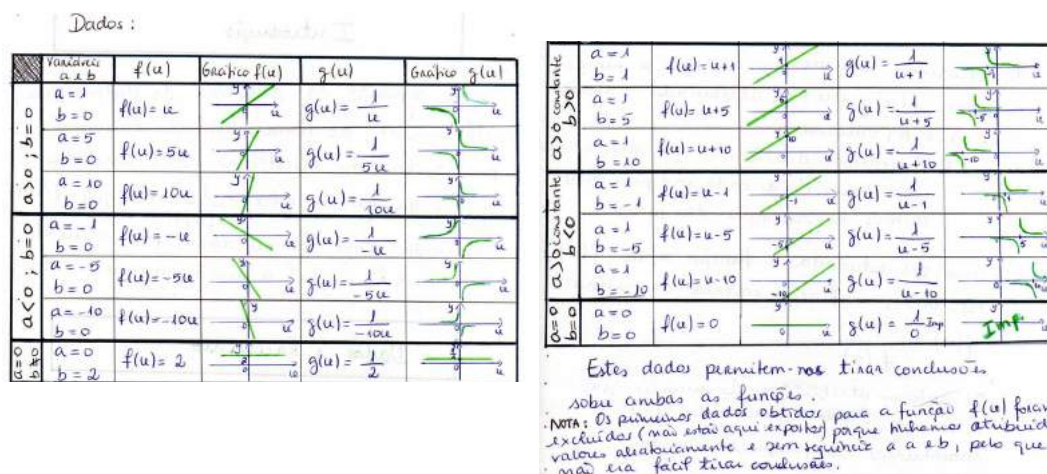 Dados :
Variáveis a e b | f(u) | Gráfico f(u) | g(u) | Gráfico g(u)
a>0 ; b=0
a = 1 b = 0 | f(u) = u | g(u) = 1/u
a = 5 b = 0 | f(u) = 5u | g(u) = 1/5u
a = 10 b = 0 | f(u) = 10u | g(u) = 1/10u
a<0 ; b=0
a = -1 b = 0 | f(u) = -u | g(u) = 1/-u
a = -5 b = 0 | f(u) = -5u | g(u) = 1/-5u
a = -10 b = 0 | f(u) = -10u | g(u) = 1/-10u
a=0 b≠0
a = 0 b = 2 | f(u) = 2 | g(u) = 1/2
a>0 constante b>0
a = 1 b = 1 | f(u) = u+1 | g(u) = 1/u+1
a = 1 b = 5 | f(u) = u+5 | g(u) = 1/u+5
a = 1 b = 10 | f(u) = u+10 | g(u) = 1/u+10
a>0 constante b<0
a = 1 b = -1 | f(u) = u-1 | g(u) = 1/u-1
a = 1 b = -5 | f(u) = u-5 | g(u) = 1/u-5
a = 1 b = -10 | f(u) = u-10 | g(u) = 1/u-10
a=0 b=0
a = 0 b = 0 | f(u) = 0 | g(u) = 1/0 Imp. | Imp.
Estes dados permitem-nos tirar conclusões
sobre ambas as funções.
NOTA: Os primeiros dados obtidos para a função f(u) foram
excluídos (não estão aqui expostos) porque tínhamos atribuído
valores aleatoriamente e sem sequência a a e b, pelo que
não era fácil tirar conclusões.